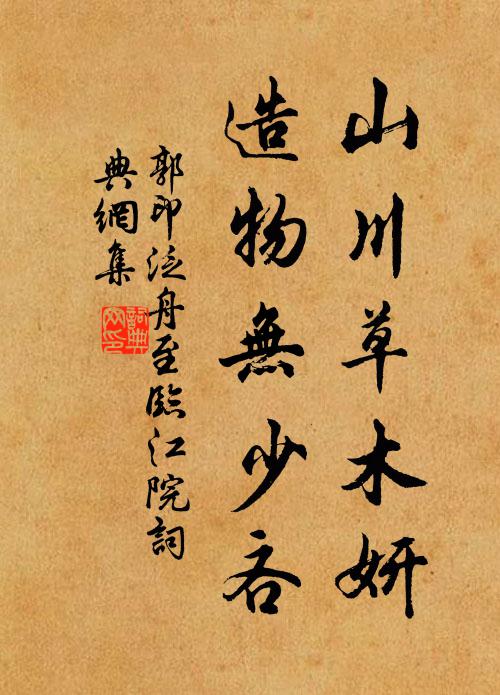 山川草木妍
造物無少吝
郭印泛舟至臨江院詞
典網集
詞典網印